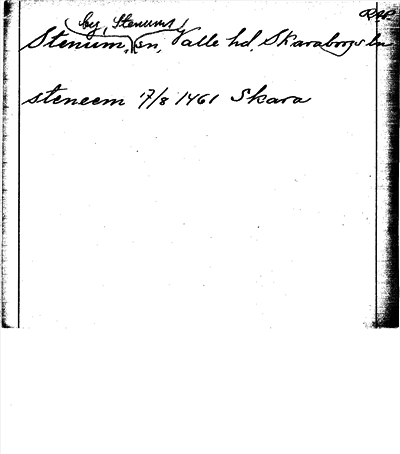 RAP
by, Stenums
Stenum, sn, Valle hd, Skaraborgs ln
steneem 17/8 1461 Skara